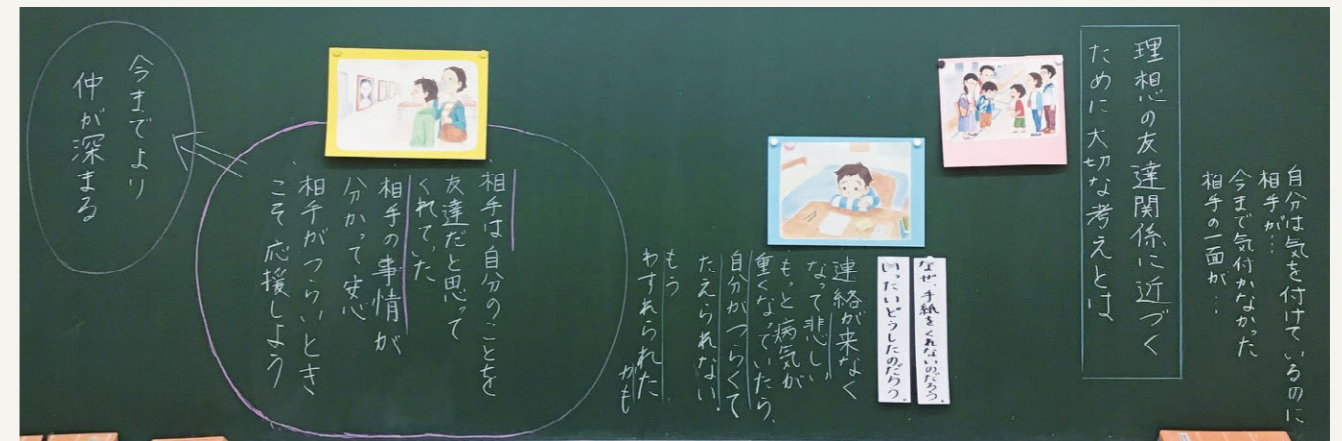 自分は気を付けているのに
相手が…
今まで気付かなかった
相手の一面が…
理想の友達関係に近づく
ために大切な考えとは
なぜ、手紙をくれないのだろう。
いったいどうしたのだろう。
連絡が来なく
なって悲しい
もっと病気が
重くなっていたら、
自分がつらくて
たえられない。
もう
わすれられた
かも
相手は自分のことを
友達だと思って
くれていた
相手の事情が
分かって安心
相手がつらいとき
こそ応援しよう
今までより
仲が深まる